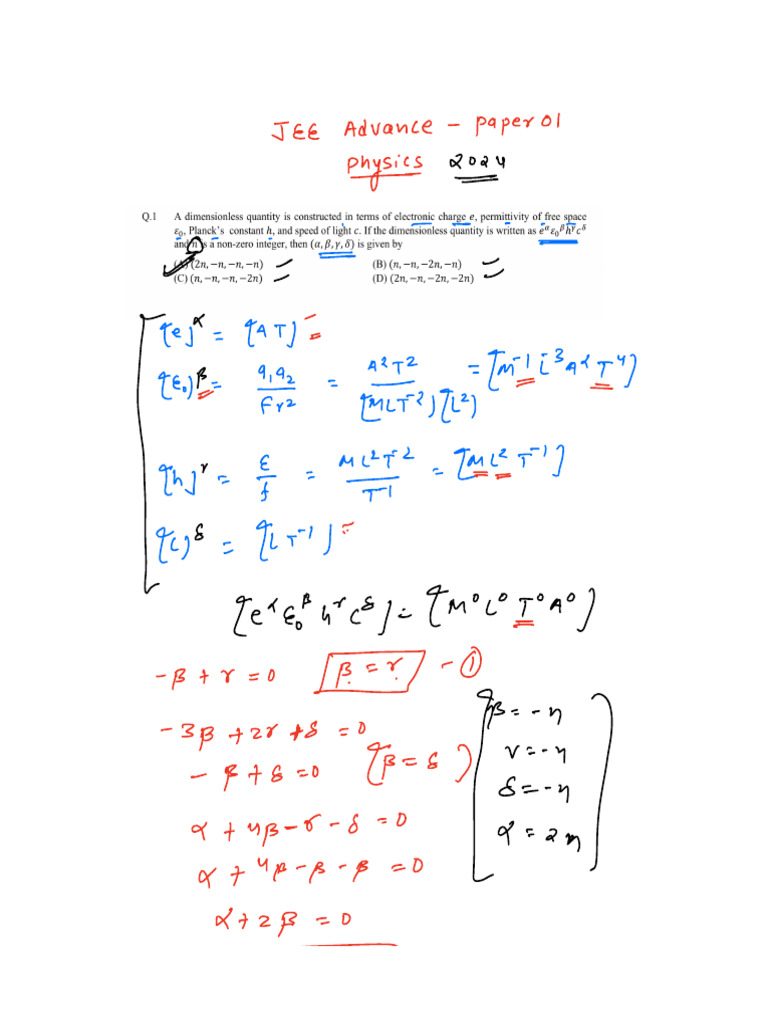 JEE Advance - paper 01
physics 2024
Q.1 A dimensionless quantity is constructed in terms of electronic charge e, permittivity of free space
ε₀, Planck's constant h, and speed of light c. If the dimensionless quantity is written as e^α ε₀^β h^γ c^δ
and n is a non-zero integer, then (α, β, γ, δ) is given by
(A) (2n, −n, −n, −n) (B) (n, −n, −2n, −n)
(C) (n, −n, −n, −2n) (D) (2n, −n, −2n, −2n)
[e]^α = [AT]
[ε₀]^β = q₁q₂/Fr² = A²T²/[MLT⁻²][L²] = [M⁻¹ L⁻³ A² T⁴]
[h]^r = E/f = ML²T⁻²/T⁻¹ = [ML²T⁻¹]
[C]^δ = [LT⁻¹]
[e^α ε₀^β h^r c^δ] = [M⁰L⁰T⁰A⁰]
-β + r = 0 β = r - ①
-3β + 2r + δ = 0
-β + δ = 0 [β = δ]
α + 4β - r - δ = 0
α + 4β - β - β = 0
α + 2β = 0
β = -n
r = -n
δ = -n
α = 2n